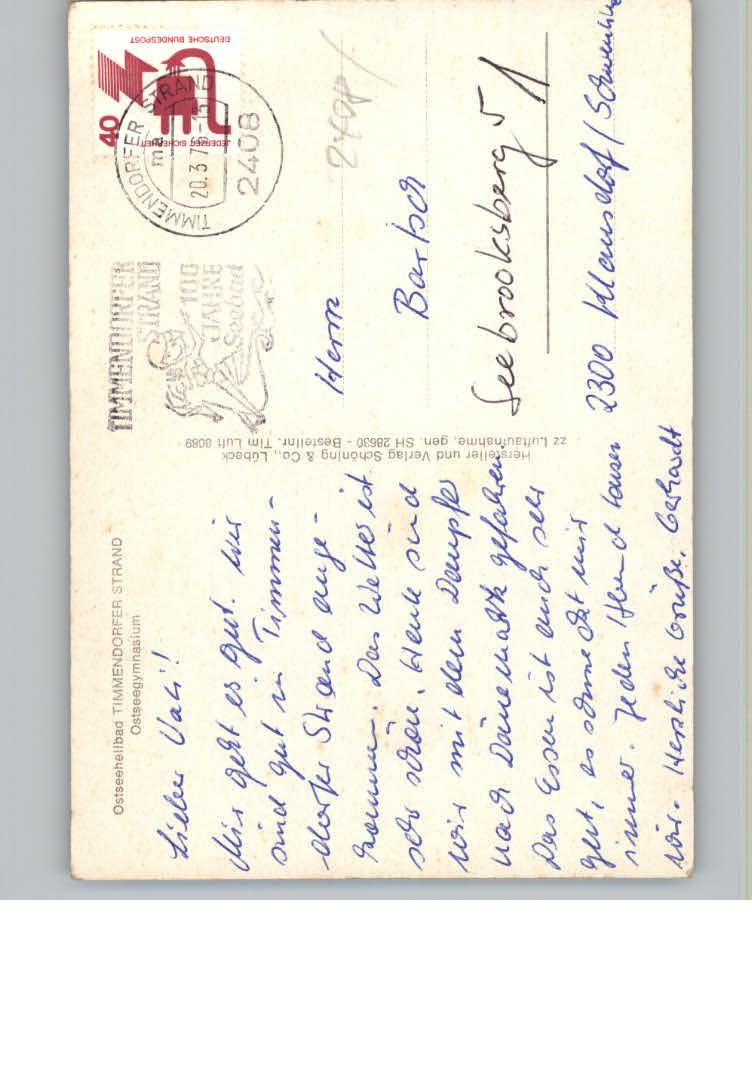 Ostseeheilbad TIMMENDORFER STRAND
Ostseegymnasium
Lieber Vati!
Mir geht es gut. Wir
sind gut in Timmen-
dorfer Strand ange-
kommen. Das Wetter ist
sehr schön. Heute sind
wir mit dem Dampfer
nach Dänemark gefahren.
Das Essen ist auch sehr
gut, es schmeckt mir
immer. Jeden Abend tanzen
wir. Herzliche Grüße, Gerhardt
Hersteller und Verlag Schöning & Co., Lübeck
zz Luftaufnahme, gen. SH 28630 - Bestellnr. Tim Luft 8089
TIMMENDORFER
STRAND
100
JAHRE
Seebad
TIMMENDORFER STRAND
ma
20.3.76-15
2408
DEUTSCHE BUNDESPOST
JEDERZEIT SICHERHEIT
40
2408
Herrn
Bartsch
Seebrooksberg 51
2300 Klausdorf/Schwentine